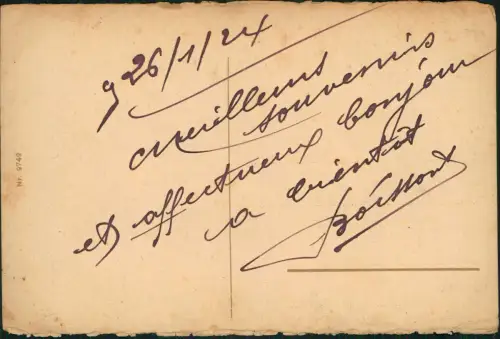 g 26/1/24
Meilleurs
souvenirs
et affectueux bonjour
a bientôt
Boissont
Nr. 9740